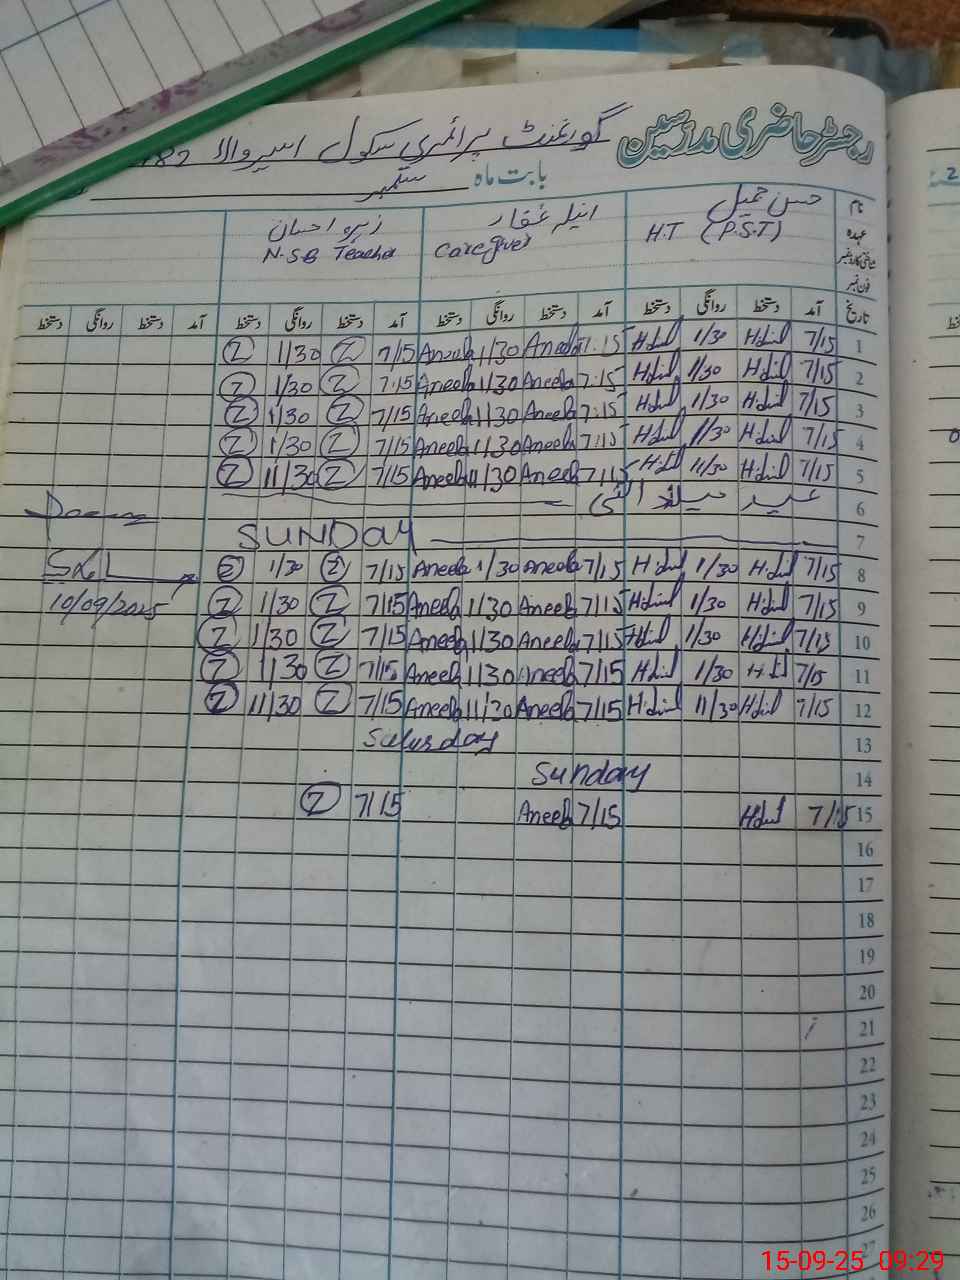 رجسٹر حاضری مدرسین گورنمنٹ پرائمری سکول
بابت ماہ ستمبر
نام حسن جمیل انیلہ غفار زہرہ احسان
عہدہ H.T (P.S.T) Caregiver N.S.B Teacher
شناختی کارڈ نمبر
فون نمبر
تاریخ آمد دستخط روانگی دستخط آمد دستخط روانگی دستخط آمد دستخط روانگی دستخط آمد دستخط روانگی دستخط
1 7/15 1/30 7:15 Aneela 1/30 Aneela 7/15 Z 1/30 Z
2 7/15 1/30 7:15 Aneela 1/30 Aneela 7:15 Z 1/30 Z
3 7/15 1/30 7:15 Aneela 1/30 Aneela 7/15 Z 1/30 Z
4 7/15 1/30 7/15 Aneela 1/30 Aneela 7/15 Z 1/30 Z
5 7/15 11/30 7/15 Aneela 11/30 Aneela 7/15 Z 11/30 Z
6 عید میلاد النبی
7 SUNDAY
8 7/15 1/30 7/15 Aneela 1/30 Aneela 7/15 Z 1/30 Z
9 7/15 1/30 7/15 Aneela 1/30 Aneela 7/15 Z 1/30 Z 10/09/2025
10 7/15 1/30 7/15 Aneela 1/30 Aneela 7/15 Z 1/30 Z
11 7/15 1/30 7/15 Aneela 1/30 Aneela 7/15 Z 1/30 Z
12 7/15 11/30 7/15 Aneela 11/30 Aneela 7/15 Z 11/30 Z
13 Saturday
14 Sunday
15 7/15 7/15 Aneela 7/15 Z
16
17
18
19
20
21
22
23
24
25
26
27
15-09-25 09:29